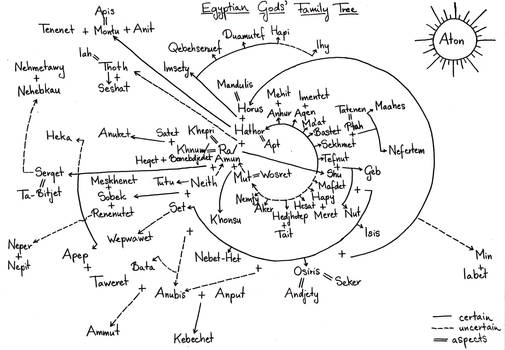 Egyptian Gods' Family Tree
Apis
Tenenet + Montu + Anit
Iah
Thoth
Seshat
Nehmetawy
+
Nehebkau
Qebehsenuef
Duamutef
Hapi
Ihy
Imsety
Aton
Mandulis
Horus
+
Hathor
Apt
Mehit
+
Anhur
Imentet
+
Aqen
Ma'at
Bastet
Tatenen
Ptah
+
Sekhmet
Maahes
Nefertem
Heka
Anuket
Satet
+
Khnum
Khepri
Ra/
Amun
Heqet + Banebdjedet
Tefnut
+
Shu
Geb
+
Nut
Serqet
Ta-Bitjet
Meskhenet
+
Sobek
+
Renenutet
Tutu
Neith
+
Mut
Wosret
Mafdet
Hapy
+
Meret
Hesat
Hedjhotep
+
Tait
Nemty
Aker
Khonsu
Set
Wepwawet
Isis
Neper
+
Nepit
Apep
+
Taweret
Bata
Nebet-Het
Osiris
Seker
Andjety
+
Min
+
Iabet
Anubis + Anput
Ammut
Kebechet
certain
uncertain
aspects